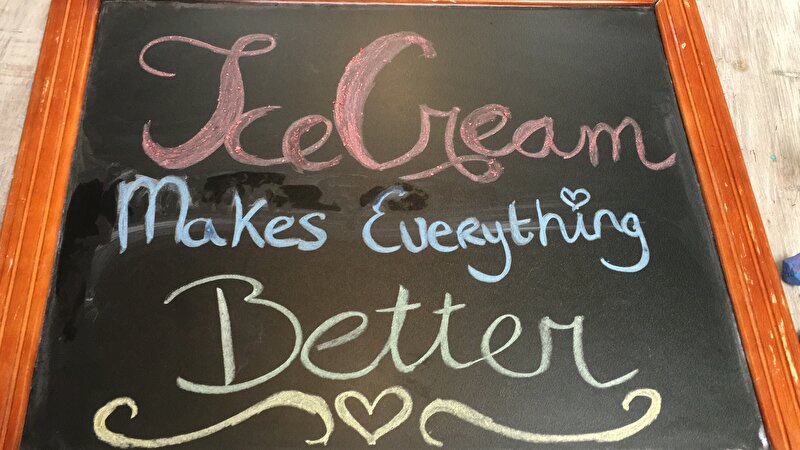 Ice Cream
Makes Everything
Better